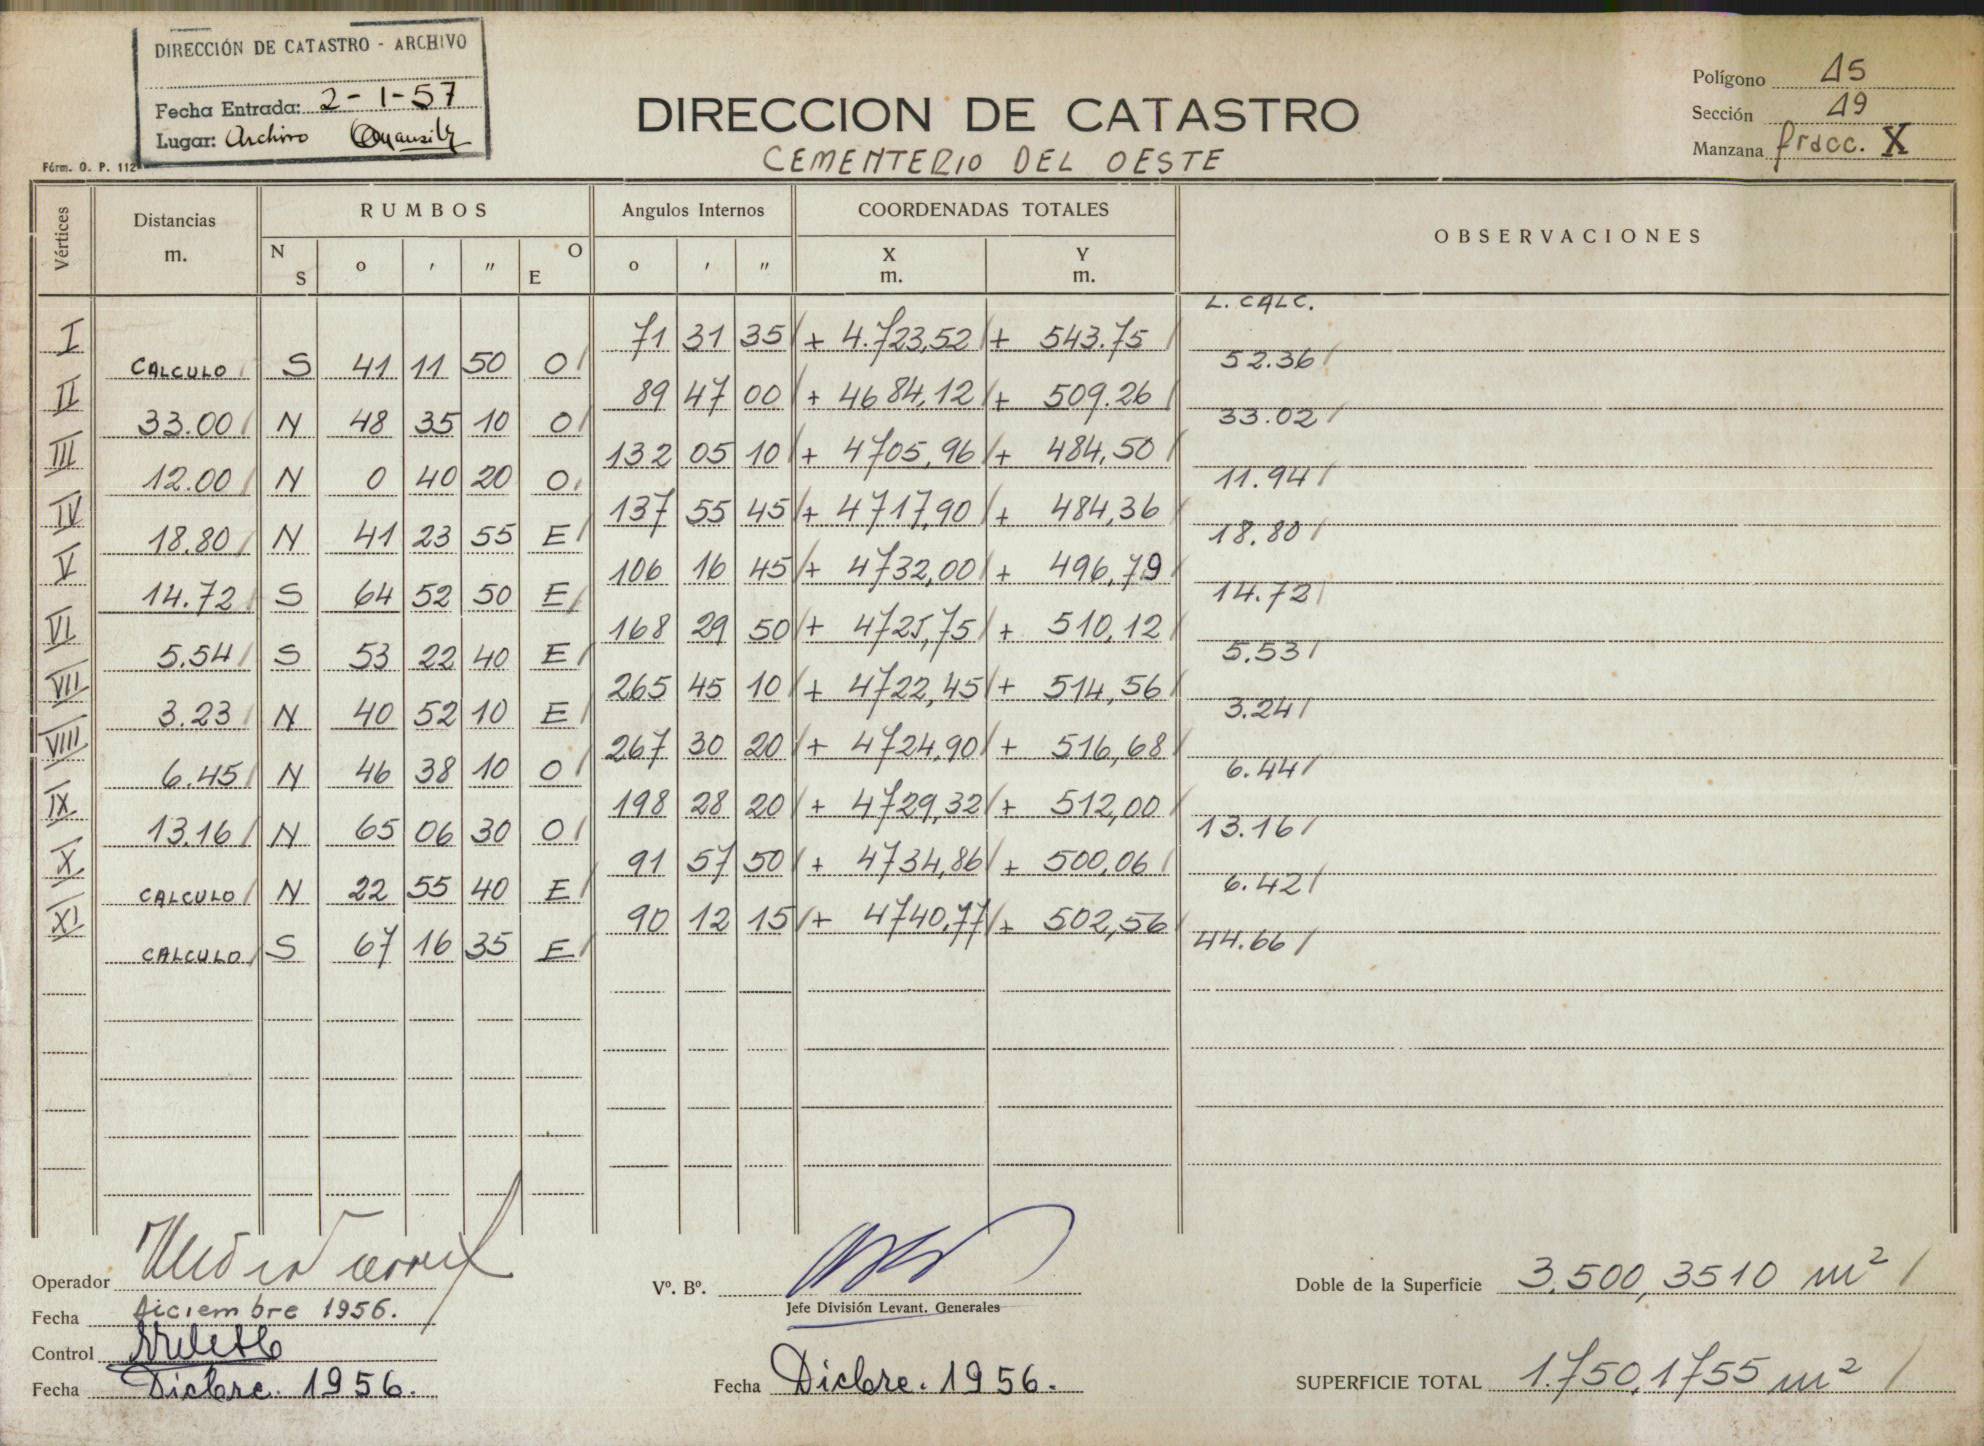 DIRECCIÓN DE CATASTRO - ARCHIVO
Fecha Entrada: 2-1-57
Lugar: Archivo
Fórm. O. P. 112
DIRECCION DE CATASTRO
CEMENTERIO DEL OESTE
Polígono 15
Sección 19
Manzana fracc. X
Vértices Distancias m. RUMBOS Angulos Internos COORDENADAS TOTALES OBSERVACIONES
N S o ′ ″ O E o ′ ″ X m. Y m.
L. CALC.
I 71 31 35 + 4.723,52 + 543.75
CALCULO S 41 11 50 O 52.36
II 89 47 00 + 4684,12 + 509.26
33.00 N 48 35 10 O 33.02
III 132 05 10 + 4705,96 + 484,50
12.00 N 0 40 20 O 11.94
IV 137 55 45 + 4717,90 + 484,36
18.80 N 41 23 55 E 18.80
V 106 16 45 + 4732,00 + 496,79
14.72 S 64 52 50 E 14.72
VI 168 29 50 + 4725,75 + 510,12
5.54 S 53 22 40 E 5.53
VII 265 45 10 + 4722,45 + 514,56
3.23 N 40 52 10 E 3.24
VIII 267 30 20 + 4724,90 + 516,68
6.45 N 46 38 10 O 6.44
IX 198 28 20 + 4729,32 + 512,00
13.16 N 65 06 30 O 13.16
X 91 57 50 + 4734,86 + 500,06
CALCULO N 22 55 40 E 6.42
XI 90 12 15 + 4740,77 + 502,56
CALCULO S 67 16 35 E 44.66
Operador
Fecha diciembre 1956.
Control
Fecha Dicbre. 1956.
Vº. Bº.
Jefe División Levant. Generales
Fecha Dicbre. 1956.
Doble de la Superficie 3.500,3510 m²
SUPERFICIE TOTAL 1.750,1755 m²